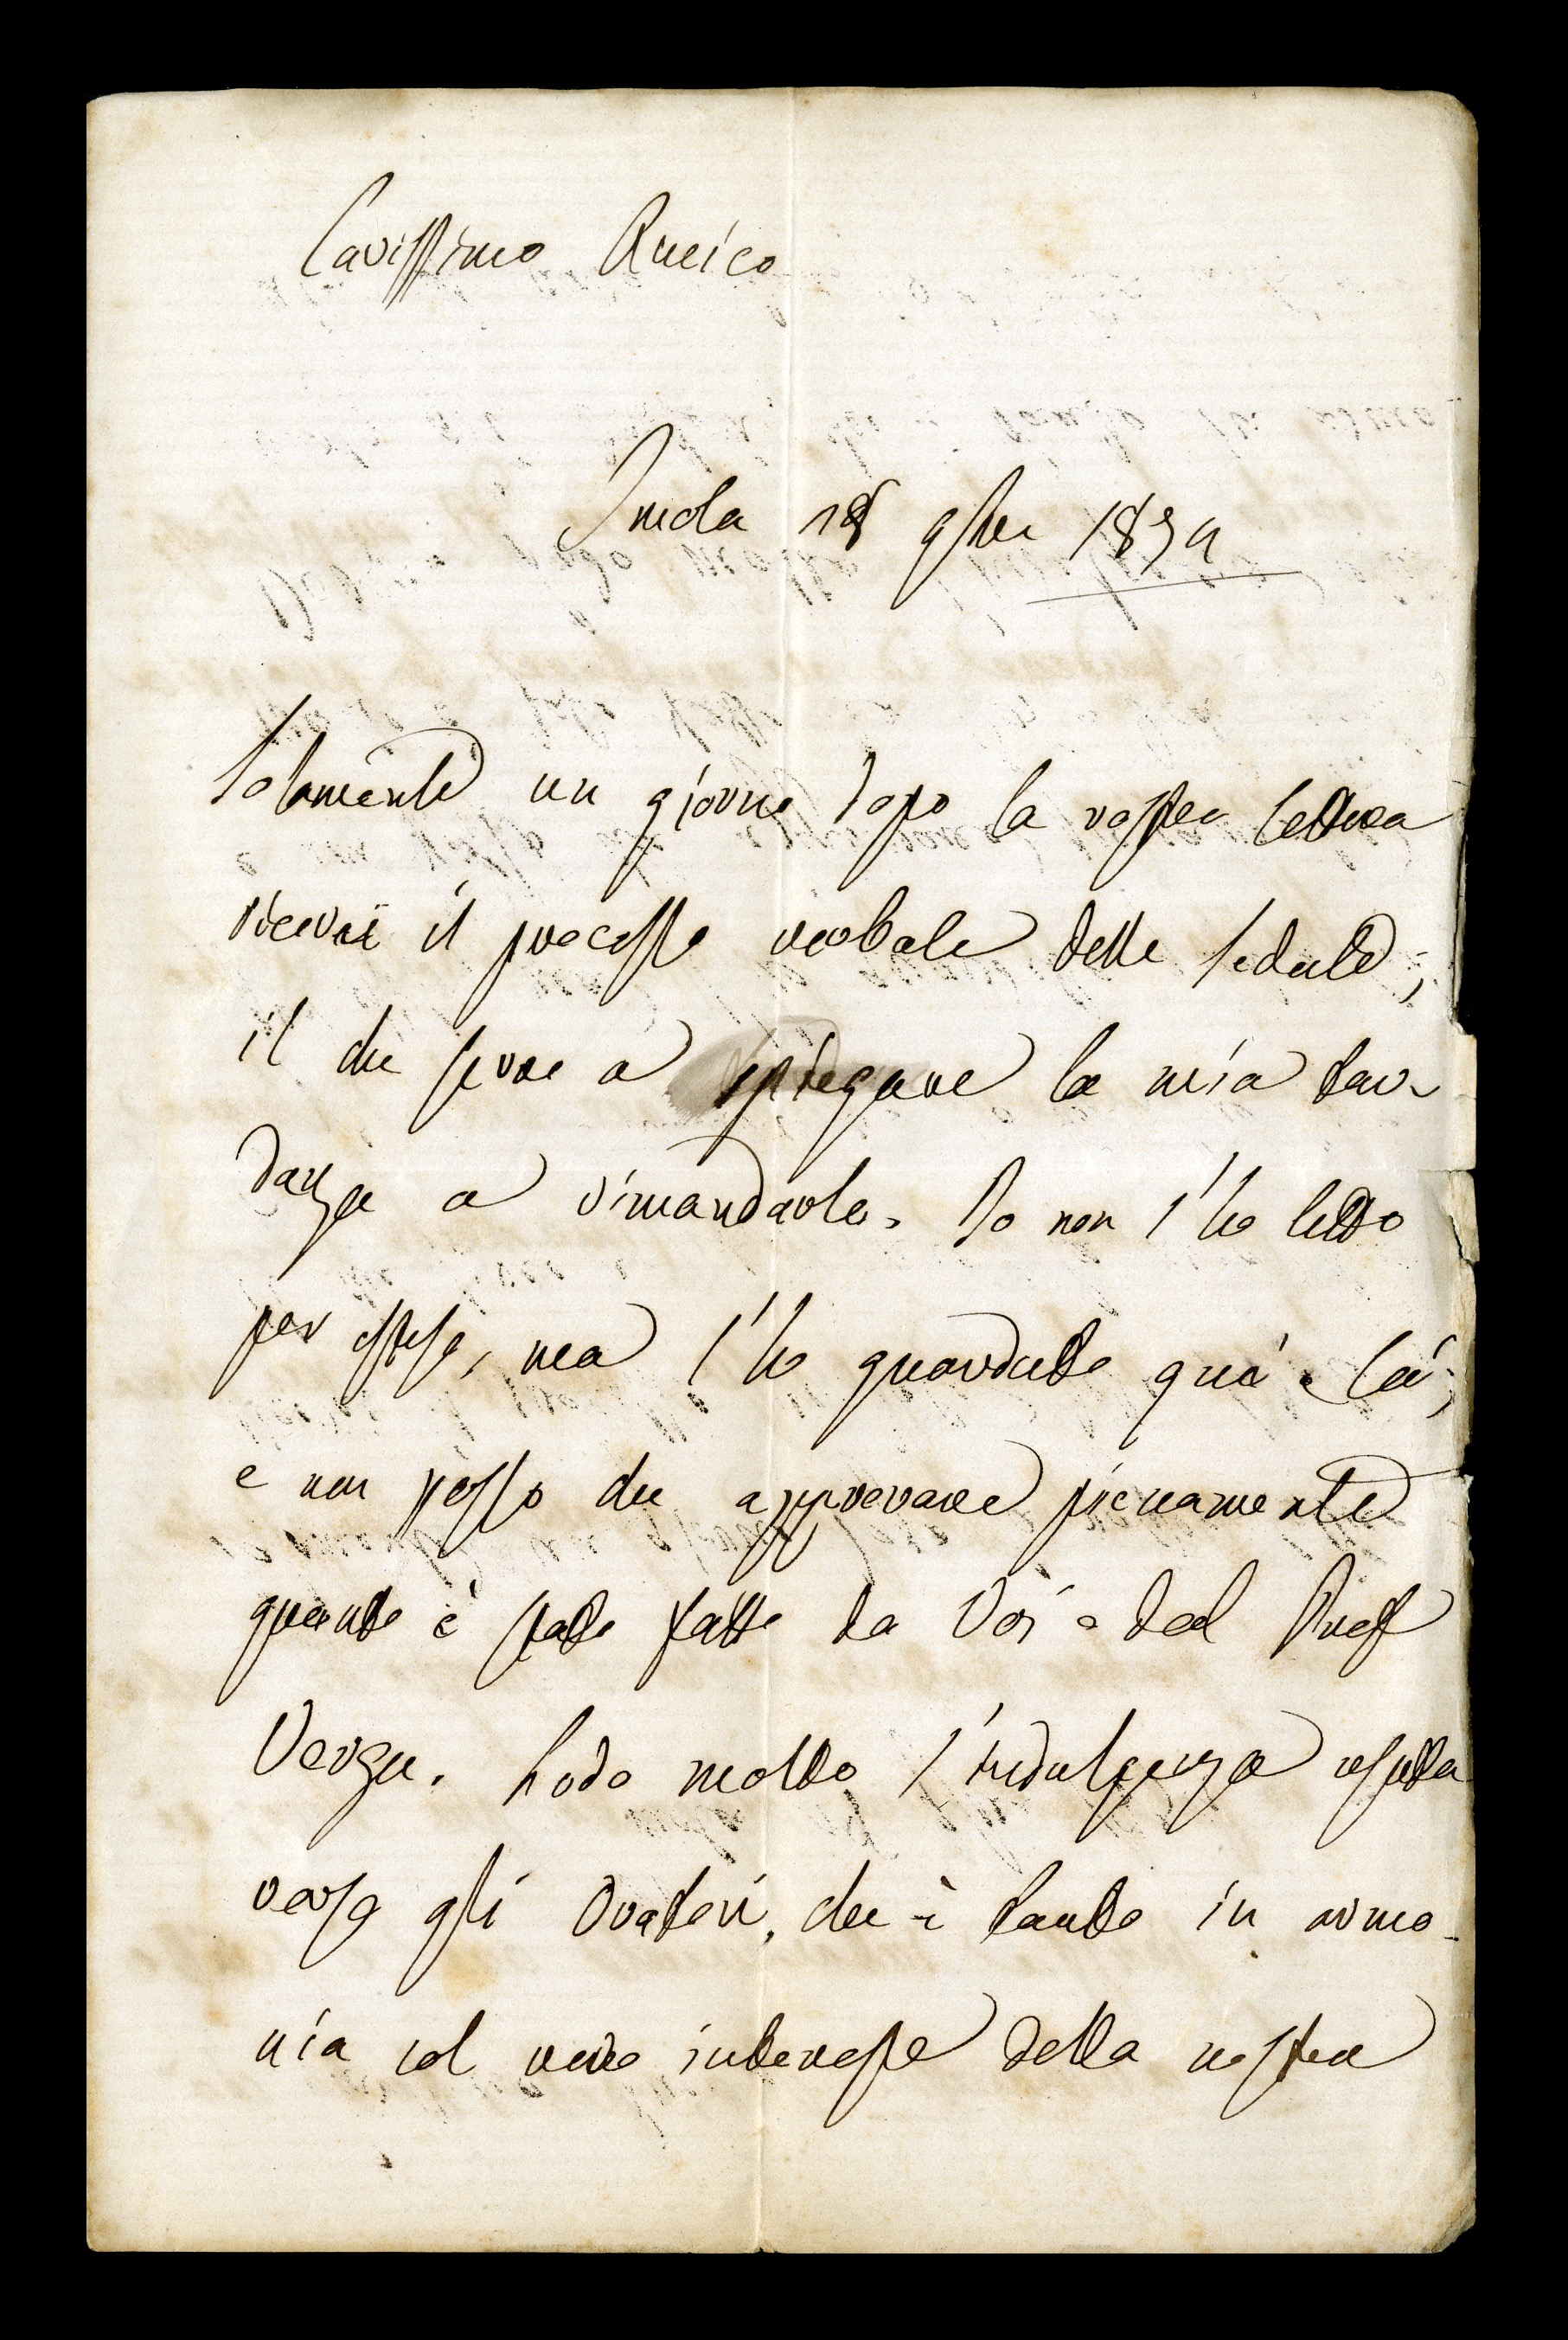 Carissimo Amico
Imola 18 9bre 1874
Solamente un giorno dopo la vostra lettera
ricevei il processo verbale delle sedute;
il che serve a spiegare la mia tar-
danza a rimandarlo. Io non l'ho letto
per esteso, ma l'ho guardato quà e là;
e non posso che approvare pienamente
quanto è stato fatto da Voi e dal Prof
Verga. Lodo molto l'indulgenza usata
verso gli Oratori, che è tanto in armo-
nia col vero interesse della nostra